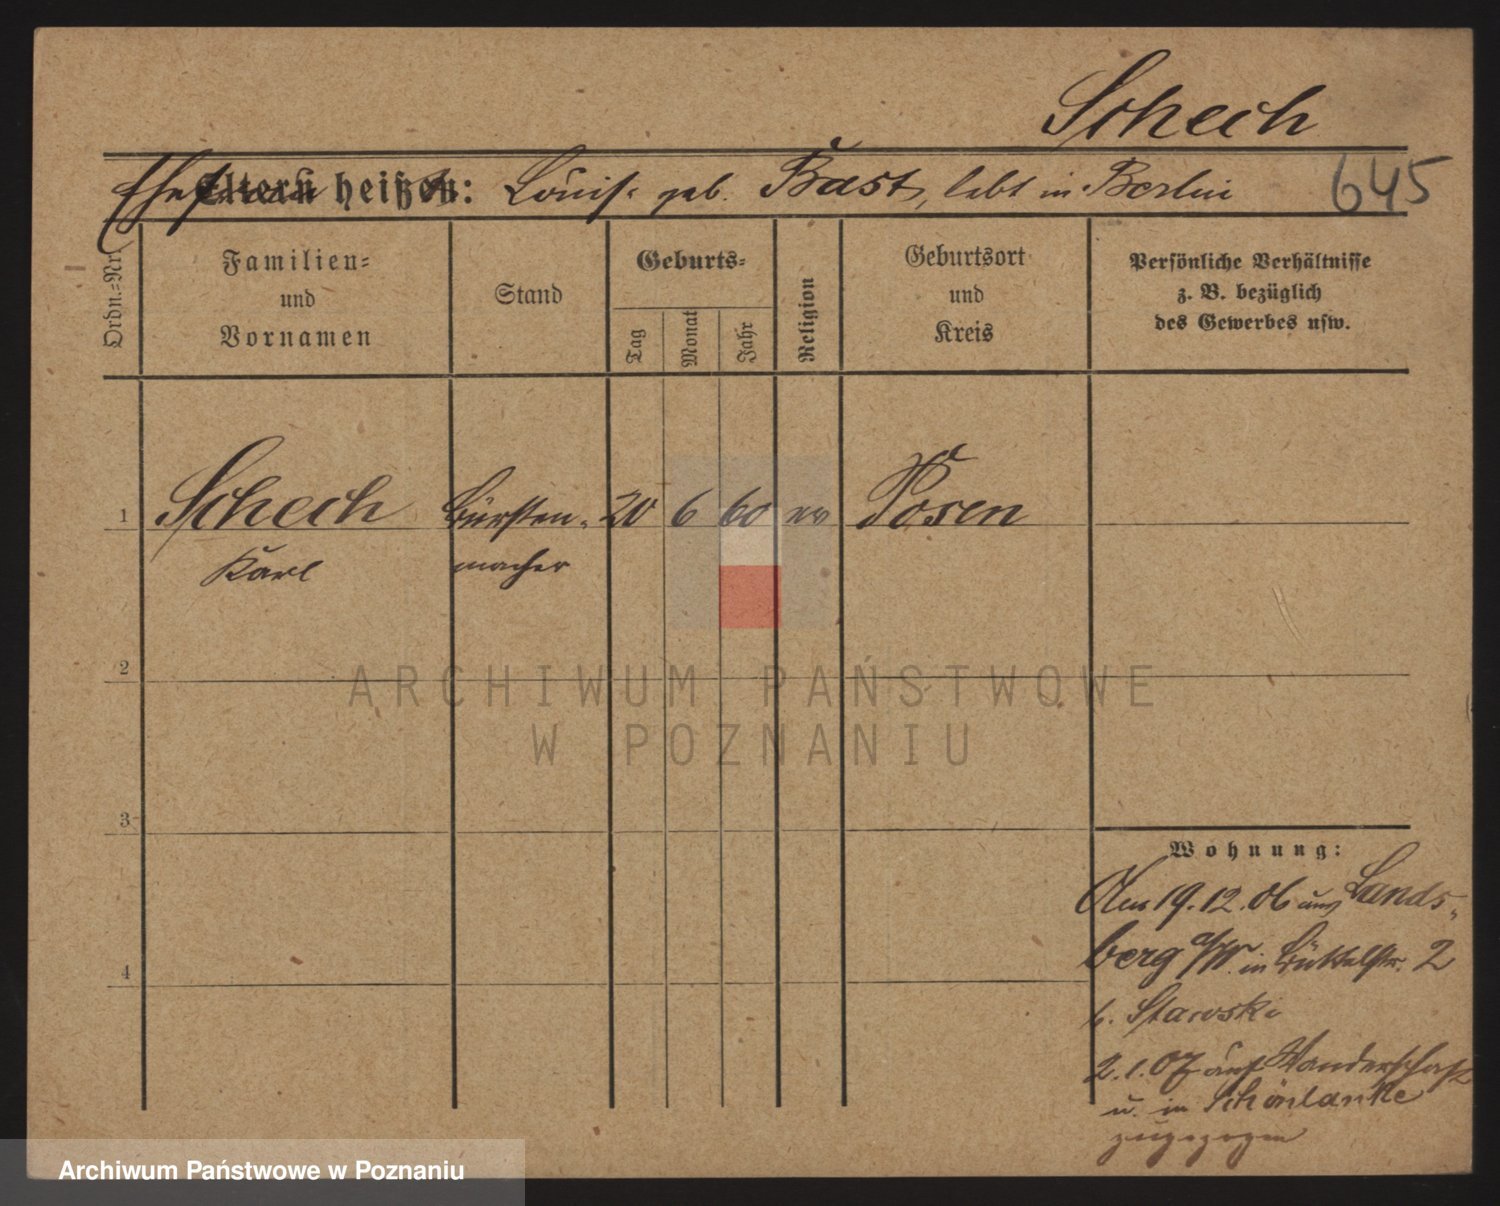 Schech
645
Ehefrau Eltern heißen: Louise geb. Bast, lebt in Berlin
Ordn.=Nr.
Familien=
und
Vornamen
Stand
Geburts=
Tag
Monat
Jahr
Religion
Geburtsort
und
Kreis
Persönliche Verhältnisse
z. B. bezüglich
des Gewerbes usw.
1 Schech Bürsten- 20 6 60 ev Posen
Karl macher
2
3
4
Wohnung:
Am 19.12.06 aus Lands-
berg a/W. in Büttelstr. 2
b. Stawski
2.1.07 auf Wanderschaft
u. in Schönlanke
zugezogen
ARCHIWUM PAŃSTWOWE
W POZNANIU
Archiwum Państwowe w Poznaniu